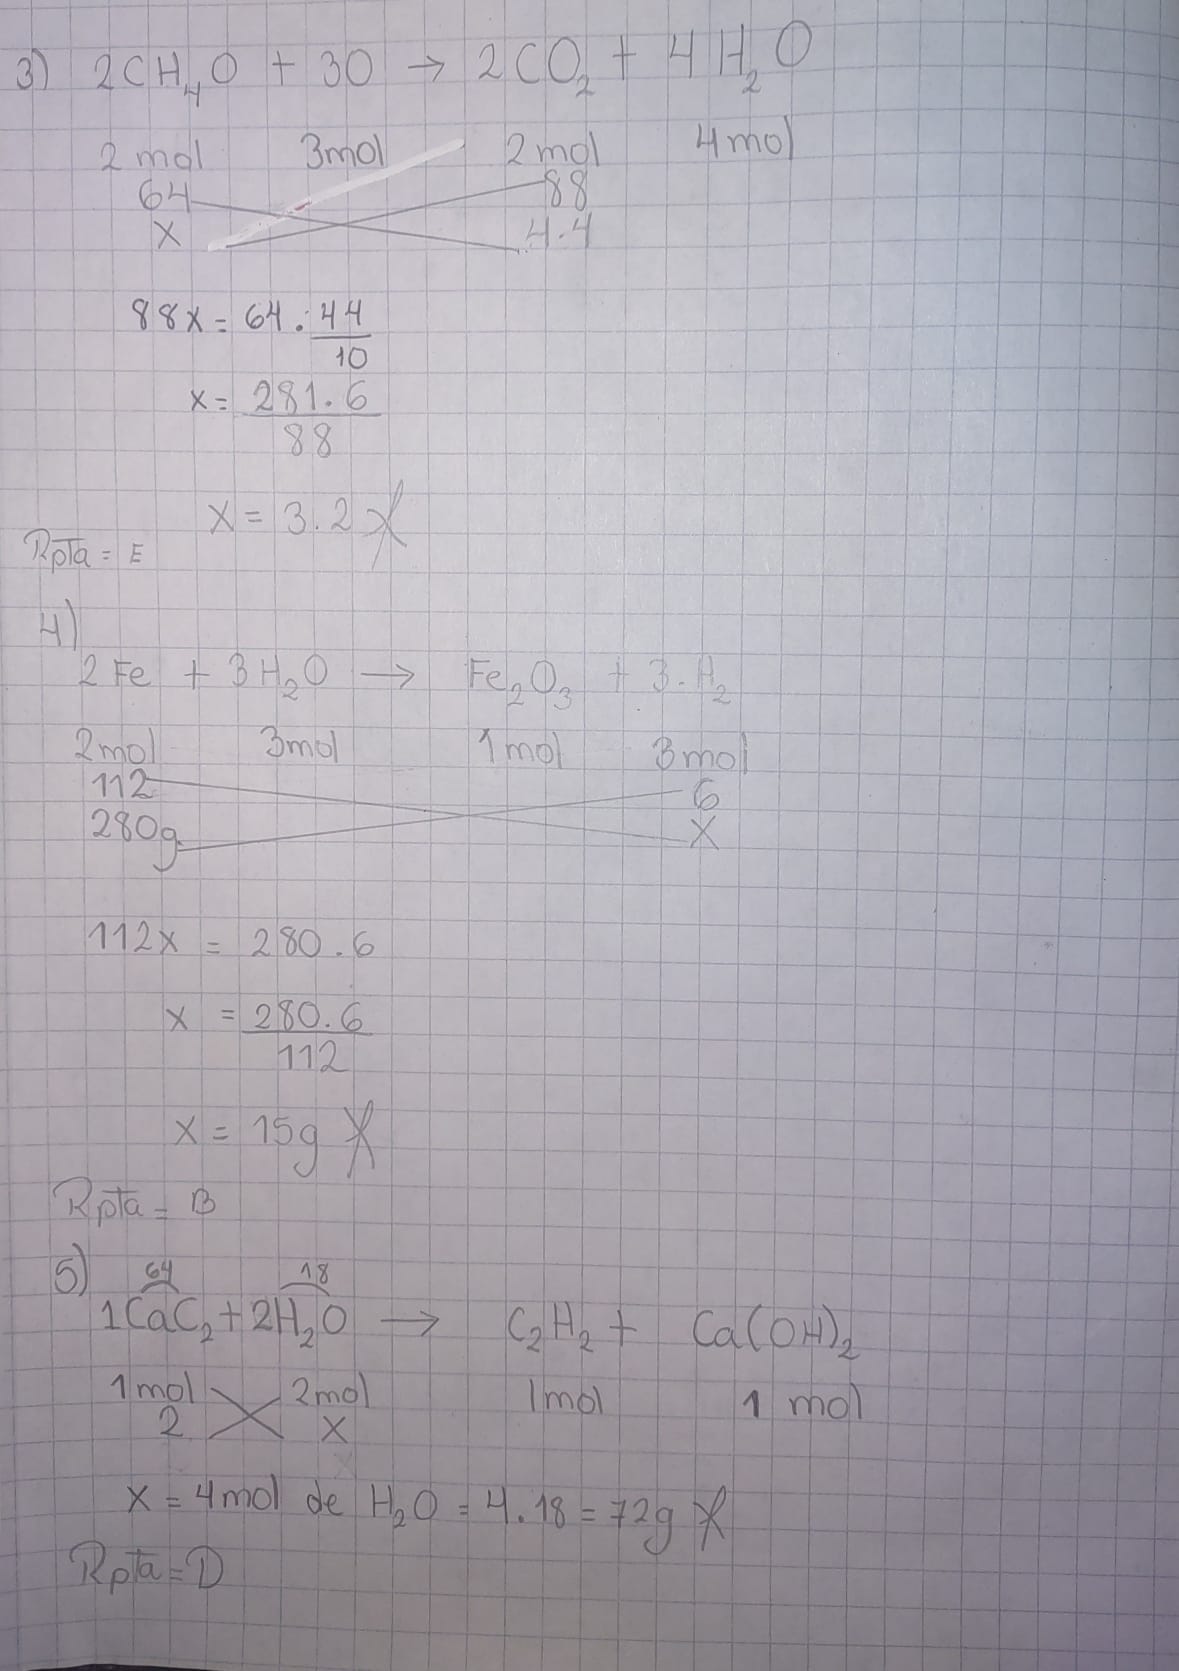 3) 2CH₄O + 3O → 2CO₂ + 4H₂O
2 mol 3mol 2 mol 4 mol
64 88
x 4.4
88x = 64 . 44
10
x = 281.6
88
x = 3.2
Rpta = E
4)
2 Fe + 3 H₂O → Fe₂O₃ + 3.H₂
2mol 3mol 1 mol 3 mol
112 6
280g x
112x = 280.6
x = 280.6
112
x = 15g
Rpta = B
5) 64 18
1CaC₂ + 2H₂O → C₂H₂ + Ca(OH)₂
1mol 2mol 1mol 1 mol
2 x
x = 4mol de H₂O = 4.18 = 72g
Rpta = D